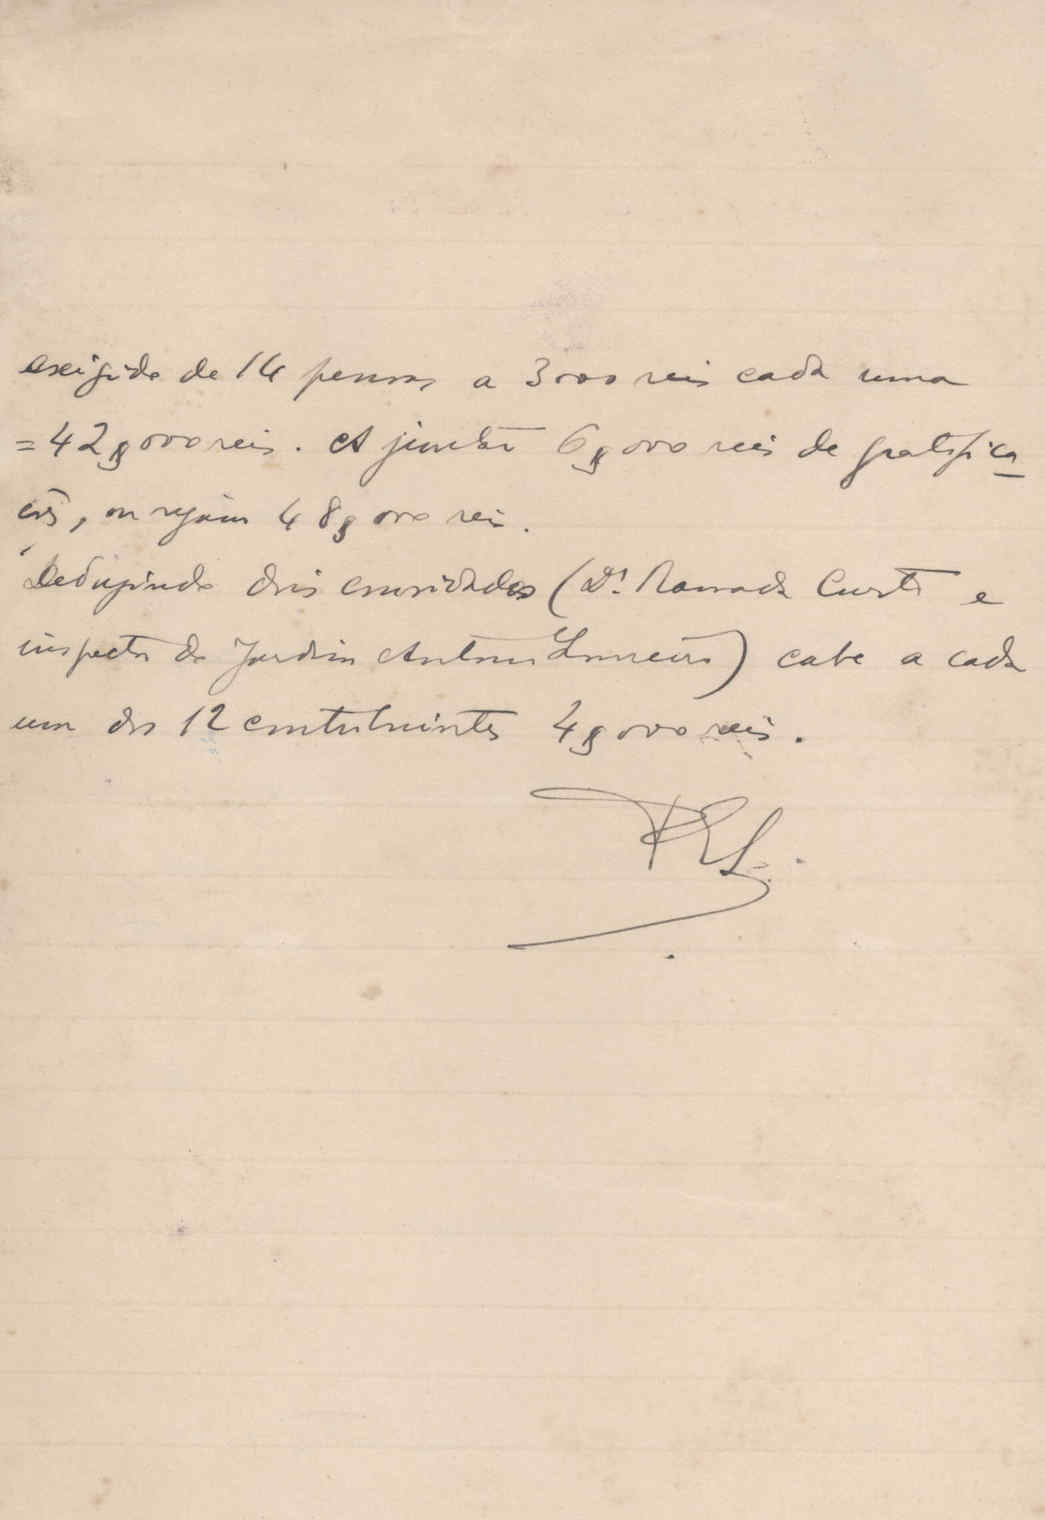 exigido de 14 pessoas a 3000 reis cada uma
= 42$000 reis. A juntar 6$000 reis de gratifica-
ção, ou sejam 48$000 reis.
Deduzindo dois convidados (Dr. Ramada Curto e
inspector do Jardim Antonio Loureiro) cabe a cada
um dos 12 contribuintes 4$000 reis.